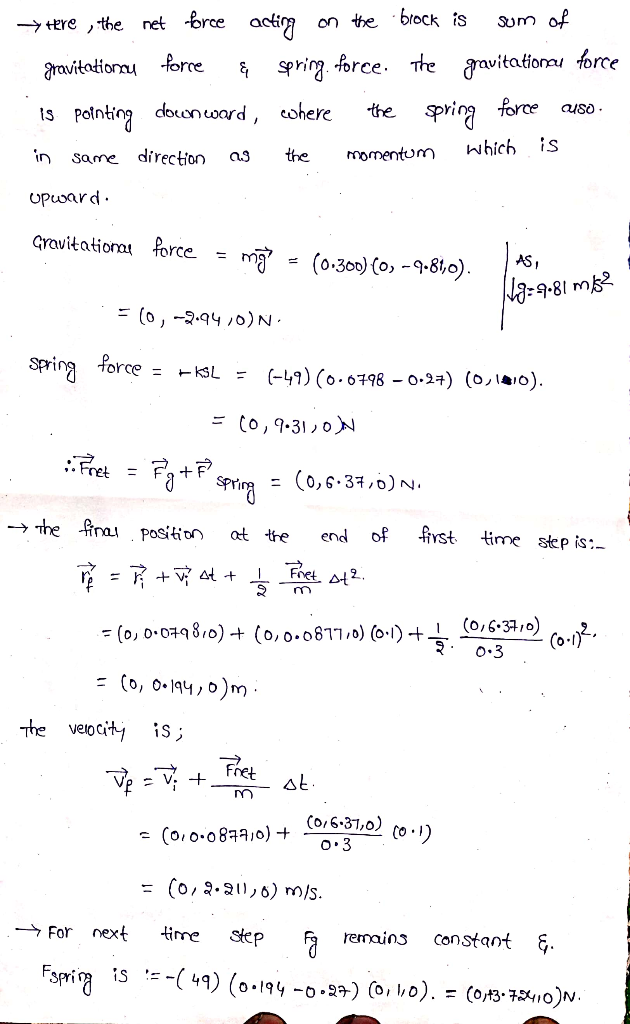 → Here, the net force acting on the block is sum of
gravitational force & spring force. The gravitational force
is pointing downward, where the spring force also
in same direction as the momentum which is
upward.
Gravitational force = mg⃗ = (0.300)(0, -9.81,0).
As,
↓g=9.81 m/s²
= (0, -2.94,0)N.
Spring force = -KSL = (-49)(0.0798 - 0.27) (0,1,0).
= (0, 9.31,0)N
∴ F⃗net = F⃗g + F⃗spring = (0,6.37,0) N.
→ The final position at the end of first time step is:-
r⃗f = r⃗i + v⃗i Δt + 1/2 F⃗net/m Δt².
= (0, 0.0798,0) + (0,0.0877,0) (0.1) + 1/2. (0,6.37,0)/0.3 (0.1)².
= (0, 0.194,0)m.
The velocity is;
v⃗f = v⃗i + F⃗net/m Δt.
= (0,0.0877,0) + (0,6.37,0)/0.3 (0.1)
= (0, 2.211,0) m/s.
→ For next time step Fg remains constant &.
Fspring is := -(49) (0.194 -0.27) (0,1,0). = (0,+3.724,0)N.